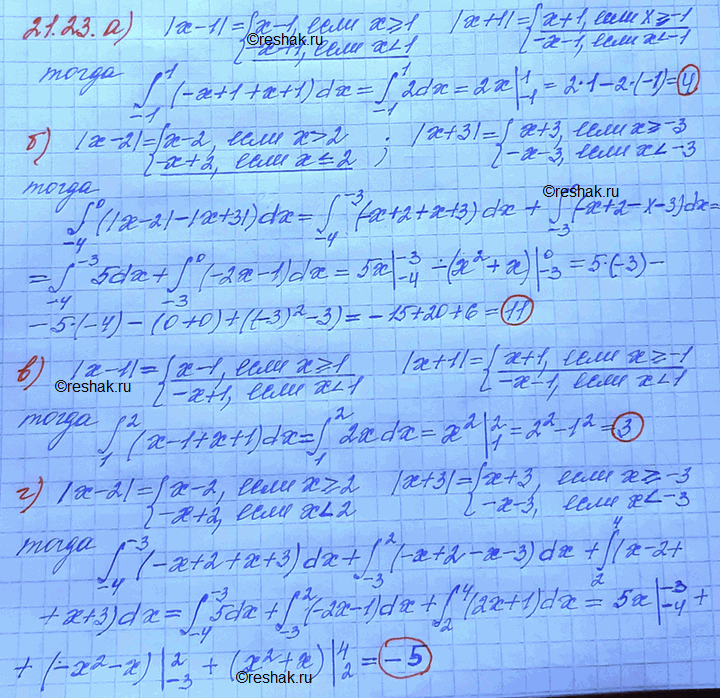 21.23. а) |x-1|={x-1, если x⩾1 |x+1|={x+1, если x⩾-1
©reshak.ru
-x+1, если x<1 -x-1, если x<-1
©reshak.ru
тогда ∫₋₁¹ (-x+1+x+1)dx=∫₋₁¹ 2dx=2x|₋₁¹=2·1-2·(-1)=4
б) |x-2|={x-2, если x>2 ; |x+3|={x+3, если x⩾-3
-x+2, если x≤2 -x-3, если x<-3
тогда
©reshak.ru
∫₋₄⁰ (|x-2|-|x+3|)dx=∫₋₄⁻³ (-x+2+x+3)dx+∫₋₃⁰ (-x+2-x-3)dx=
=∫₋₄⁻³ 5dx+∫₋₃⁰ (-2x-1)dx=5x|₋₄⁻³-(x²+x)|₋₃⁰=5·(-3)-
-5·(-4)-(0+0)+((-3)²-3)=-15+20+6=11
в) |x-1|={x-1, если x⩾1 |x+1|={x+1, если x⩾-1
©reshak.ru
-x+1, если x<1 -x-1, если x<1
©reshak.ru
тогда ∫₁² (x-1+x+1)dx=∫₁² 2xdx=x²|₁²=2²-1²=3
г) |x-2|={x-2, если x⩾2 |x+3|={x+3, если x⩾-3
-x+2, если x<2 -x-3, если x<-3
тогда ∫₋₄⁻³ (-x+2+x+3)dx+∫₋₃² (-x+2-x-3)dx+∫₂⁴ (x-2+
+x+3)dx=∫₋₄⁻³ 5dx+∫₋₃² (-2x-1)dx+∫₂⁴ (2x+1)dx=5x|₋₄⁻³+
+(-x²-x)|₋₃²+(x²+x)|₂⁴=-5
©reshak.ru